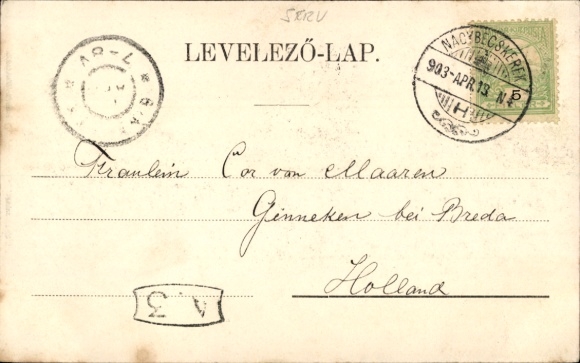 SERV
LEVELEZŐ-LAP.
NAGYBECSKEREK
903-APR.13 N4
5
7-8V
Fraulein Cor van Maaren
Ginneken bei Breda
Holland
A.3